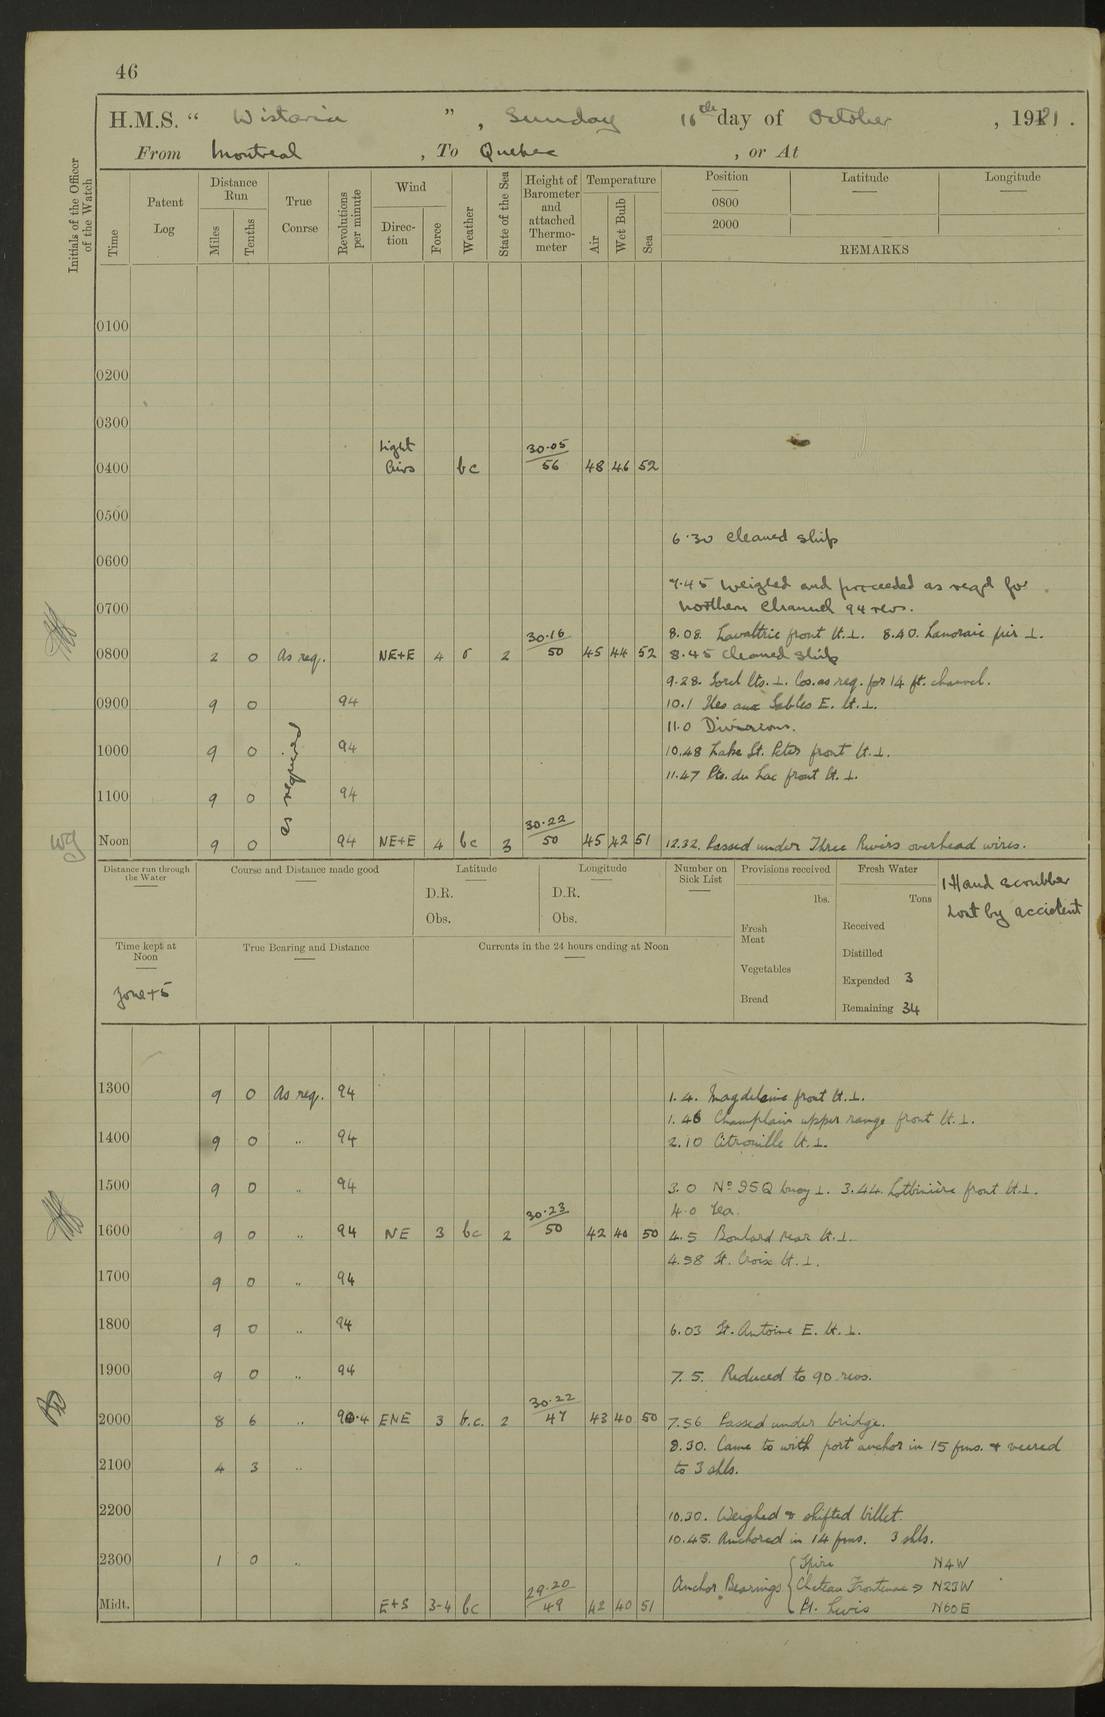 46
H.M.S. “ Wistaria ” , Sunday 16th day of October , 1921 .
From Montreal , To Quebec , or At
Initials of the Officer of the Watch
Time
Patent Log
Distance Run
Miles
Tenths
True Course
Revolutions per minute
Wind
Direction
Force
Weather
State of the Sea
Height of Barometer and attached Thermometer
Temperature
Air
Wet Bulb
Sea
Position Latitude Longitude
0800
2000
REMARKS
0100
0200
0300
Light 30.05
0400 Airs bc 56 48 46 52
0500
6.30 Cleaned ship
0600
7.45 Weighed and proceeded as reqd for
0700 Northern Channel 94 revs.
30.16 8.08. Lavaltrie front lt. ⊥. 8.40. Lanoraie pier ⊥.
0800 2 0 As req. NE+E 4 50 45 44 52 8.45 Cleaned ship
2
9.28. Sorel lts. ⊥. Cos. as req. for 14 ft. channel.
0900 9 0 94 10.1 Iles aux Sables E. lt. ⊥.
11.0 Divisions.
1000 9 0 as required 94 10.48 Lake St. Peter front lt. ⊥.
11.47 Pte. du Lac front lt. ⊥.
1100 9 0 94
30.22
Noon 9 0 94 NE+E 4 bc 3 50 45 42 51 12.32. Passed under Three Rivers overhead wires.
Distance run through the Water
Course and Distance made good
Latitude
D.R.
Obs.
Longitude
D.R.
Obs.
Number on Sick List
Provisions received
lbs.
Fresh Meat
Vegetables
Bread
Fresh Water
Tons
Received
Distilled
Expended 3
Remaining 34
1 Hand scrubber
Lost by accident
Time kept at Noon
Zone+5
True Bearing and Distance
Currents in the 24 hours ending at Noon
1300 9 0 As req. 94 1.4. Magdelaine front lt. ⊥.
1.46 Champlain upper range front lt. ⊥.
1400 9 0 „ 94 2.10 Citrouille lt. ⊥.
1500 9 0 „ 94 3.0 No 95Q buoy ⊥. 3.44. Lotbinière front lt. ⊥.
30.23 4.0 Tea.
1600 9 0 „ 94 NE 3 bc 2 50 42 40 50 4.5 Boulard rear lt. ⊥.
4.58 St. Croix lt. ⊥.
1700 9 0 „ 94
1800 9 0 „ 94 6.03 St. Antoine E. lt. ⊥.
1900 9 0 „ 94 7.5. Reduced to 90 revs.
30.22
2000 8 6 „ 90.4 ENE 3 b.c. 2 47 43 40 50 7.56 Passed under bridge.
8.30. Came to with port anchor in 15 fms. & veered
2100 4 3 „ to 3 shls.
2200 10.30. Weighed & shifted billet.
10.45. Anchored in 14 fms. 3 shls.
2300 1 0 „ Spire N4W
29.20 Anchor Bearings Chateau Frontenac N23W
Midt. E+S 3-4 bc 49 42 40 51 Pt. Levis N60E